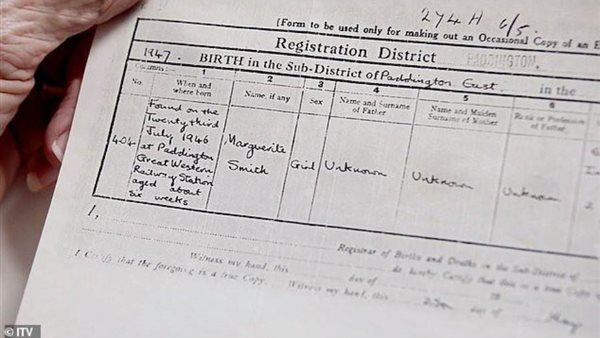 274A 6/5.
[Form to be used only for making out an Occasional Copy of an E
Registration District PADDINGTON.
1947. BIRTH in the Sub-District of Paddington East in the
Columns: 1 2 3 4 5 6
No. When and where born Name, if any Sex Name and Surname of Father Name and Maiden Surname of Mother Rank or Profession of Father
404 Found on the Twenty third July 1946 at Paddington Great Western Railway Station aged about six weeks Marguerite Smith Girl Unknown Unknown Unknown
I, Registrar of Births and Deaths in the Sub-District of
do hereby Certify that this is a true Copy
Witness my hand, this day of 19
I Certify that the foregoing is a true Copy. Witness my hand, this day of May
© ITV